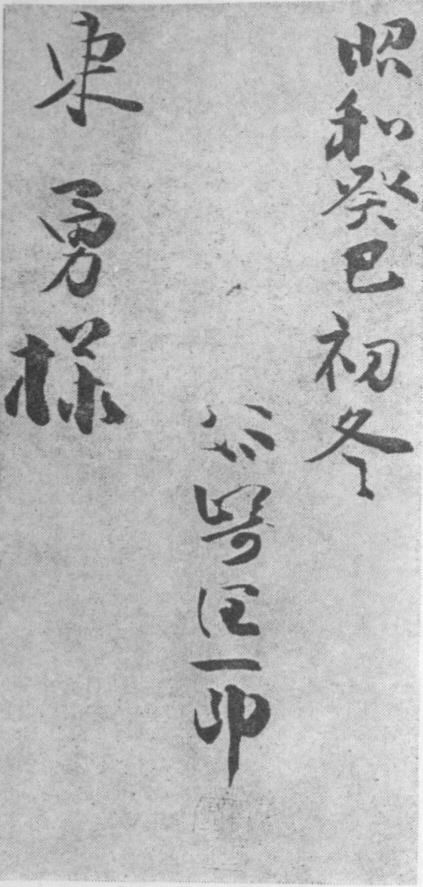 昭和癸巳初冬
谷崎潤一郎
東勇様